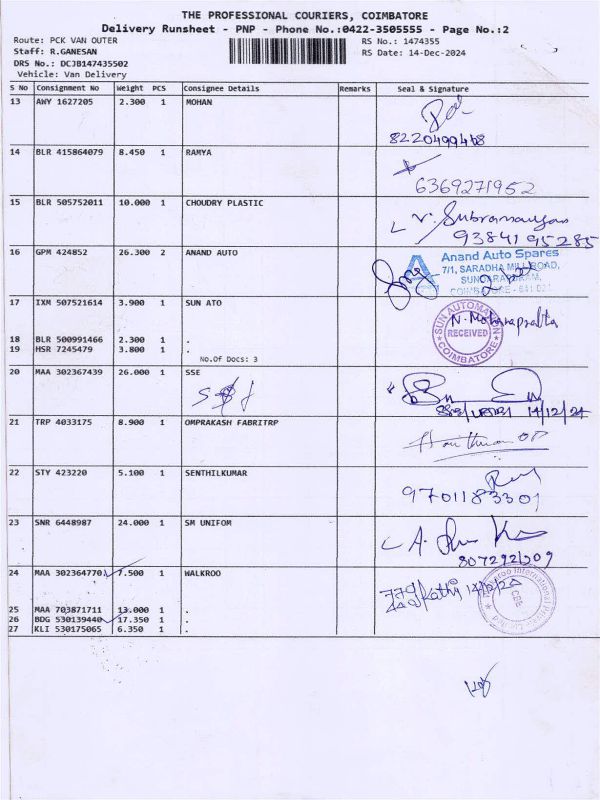 THE PROFESSIONAL COURIERS, COIMBATORE
Delivery Runsheet - PNP - Phone No.:0422-3505555 - Page No.:2
Route: PCK VAN OUTER RS No.: 1474355
Staff: R.GANESAN RS Date: 14-Dec-2024
DRS No.: DCJB147435502
Vehicle: Van Delivery
S No Consignment No Weight PCS Consignee Details Remarks Seal & Signature
13 AWY 1627205 2.300 1 MOHAN
8220499468
14 BLR 415864079 8.450 1 RAMYA
6369271952
15 BLR 505752011 10.000 1 CHOUDRY PLASTIC
V. Subramaniyan
9384195285
16 GPM 424852 26.300 2 ANAND AUTO
Anand Auto Spares
7/1, SARADHA MILL ROAD,
SUNDARAPURAM,
COIMBATORE - 641 024
17 IXM 507521614 3.900 1 SUN ATO
SUN AUTOMATION
RECEIVED
COIMBATORE
18 BLR 500991466 2.300 1 .
19 HSR 7245479 3.800 1 .
No.Of Docs: 3
20 MAA 302367439 26.000 1 SSE
14/12/24
21 TRP 4033175 8.900 1 OMPRAKASH FABRITRP
22 STY 423220 5.100 1 SENTHILKUMAR
9701183301
23 SNR 6448987 24.000 1 SM UNIFOM
24 MAA 302364770 7.500 1 WALKROO
25 MAA 703871711 13.000 1 .
26 BDG 530139440 17.350 1 .
27 KLI 530175065 6.350 1 .